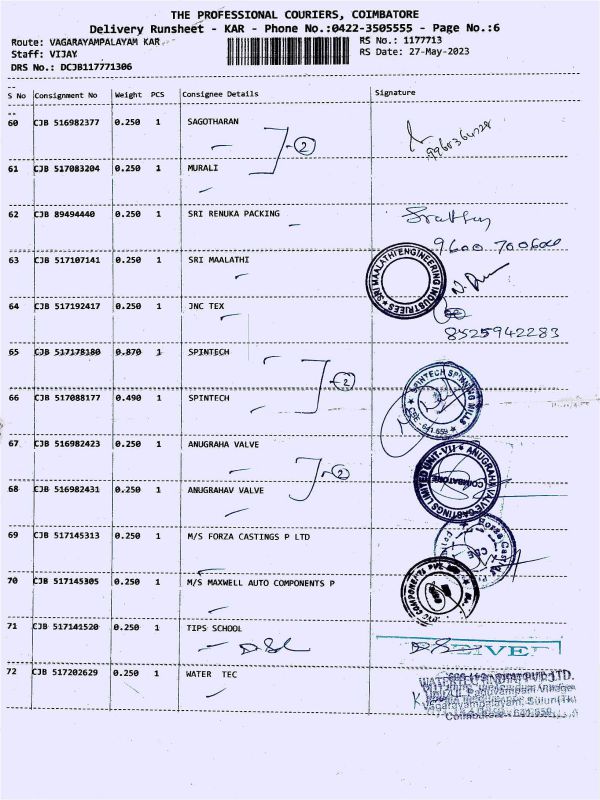 THE PROFESSIONAL COURIERS, COIMBATORE
Delivery Runsheet - KAR - Phone No.:0422-3505555 - Page No.:6
Route: VAGARAYAMPALAYAM KAR
RS No.: 1177713
Staff: VIJAY
RS Date: 27-May-2023
DRS No.: DCJB117771306
S No Consignment No Weight PCS Consignee Details Signature
60 CJB 516982377 0.250 1 SAGOTHARAN
2
61 CJB 517083204 0.250 1 MURALI
62 CJB 89494440 0.250 1 SRI RENUKA PACKING
63 CJB 517107141 0.250 1 SRI MAALATHI
SRI MAALATHI ENGINEERING INDUSTRIEES
64 CJB 517192417 0.250 1 JNC TEX
8525942283
65 CJB 517178180 0.870 1 SPINTECH
2
66 CJB 517088177 0.490 1 SPINTECH
SPINTECH SPINNING MILLS
CBE - 641 659
67 CJB 516982423 0.250 1 ANUGRAHA VALVE
2
ANUGRAHA VALVE CASTINGS LIMITED UNIT-VII
COIMBATORE
68 CJB 516982431 0.250 1 ANUGRAHAV VALVE
69 CJB 517145313 0.250 1 M/S FORZA CASTINGS P LTD
CBE
70 CJB 517145305 0.250 1 M/S MAXWELL AUTO COMPONENTS P
71 CJB 517141520 0.250 1 TIPS SCHOOL
72 CJB 517202629 0.250 1 WATER TEC
PVT. LTD.
Vagarayampalayam, Sulur(Tk)